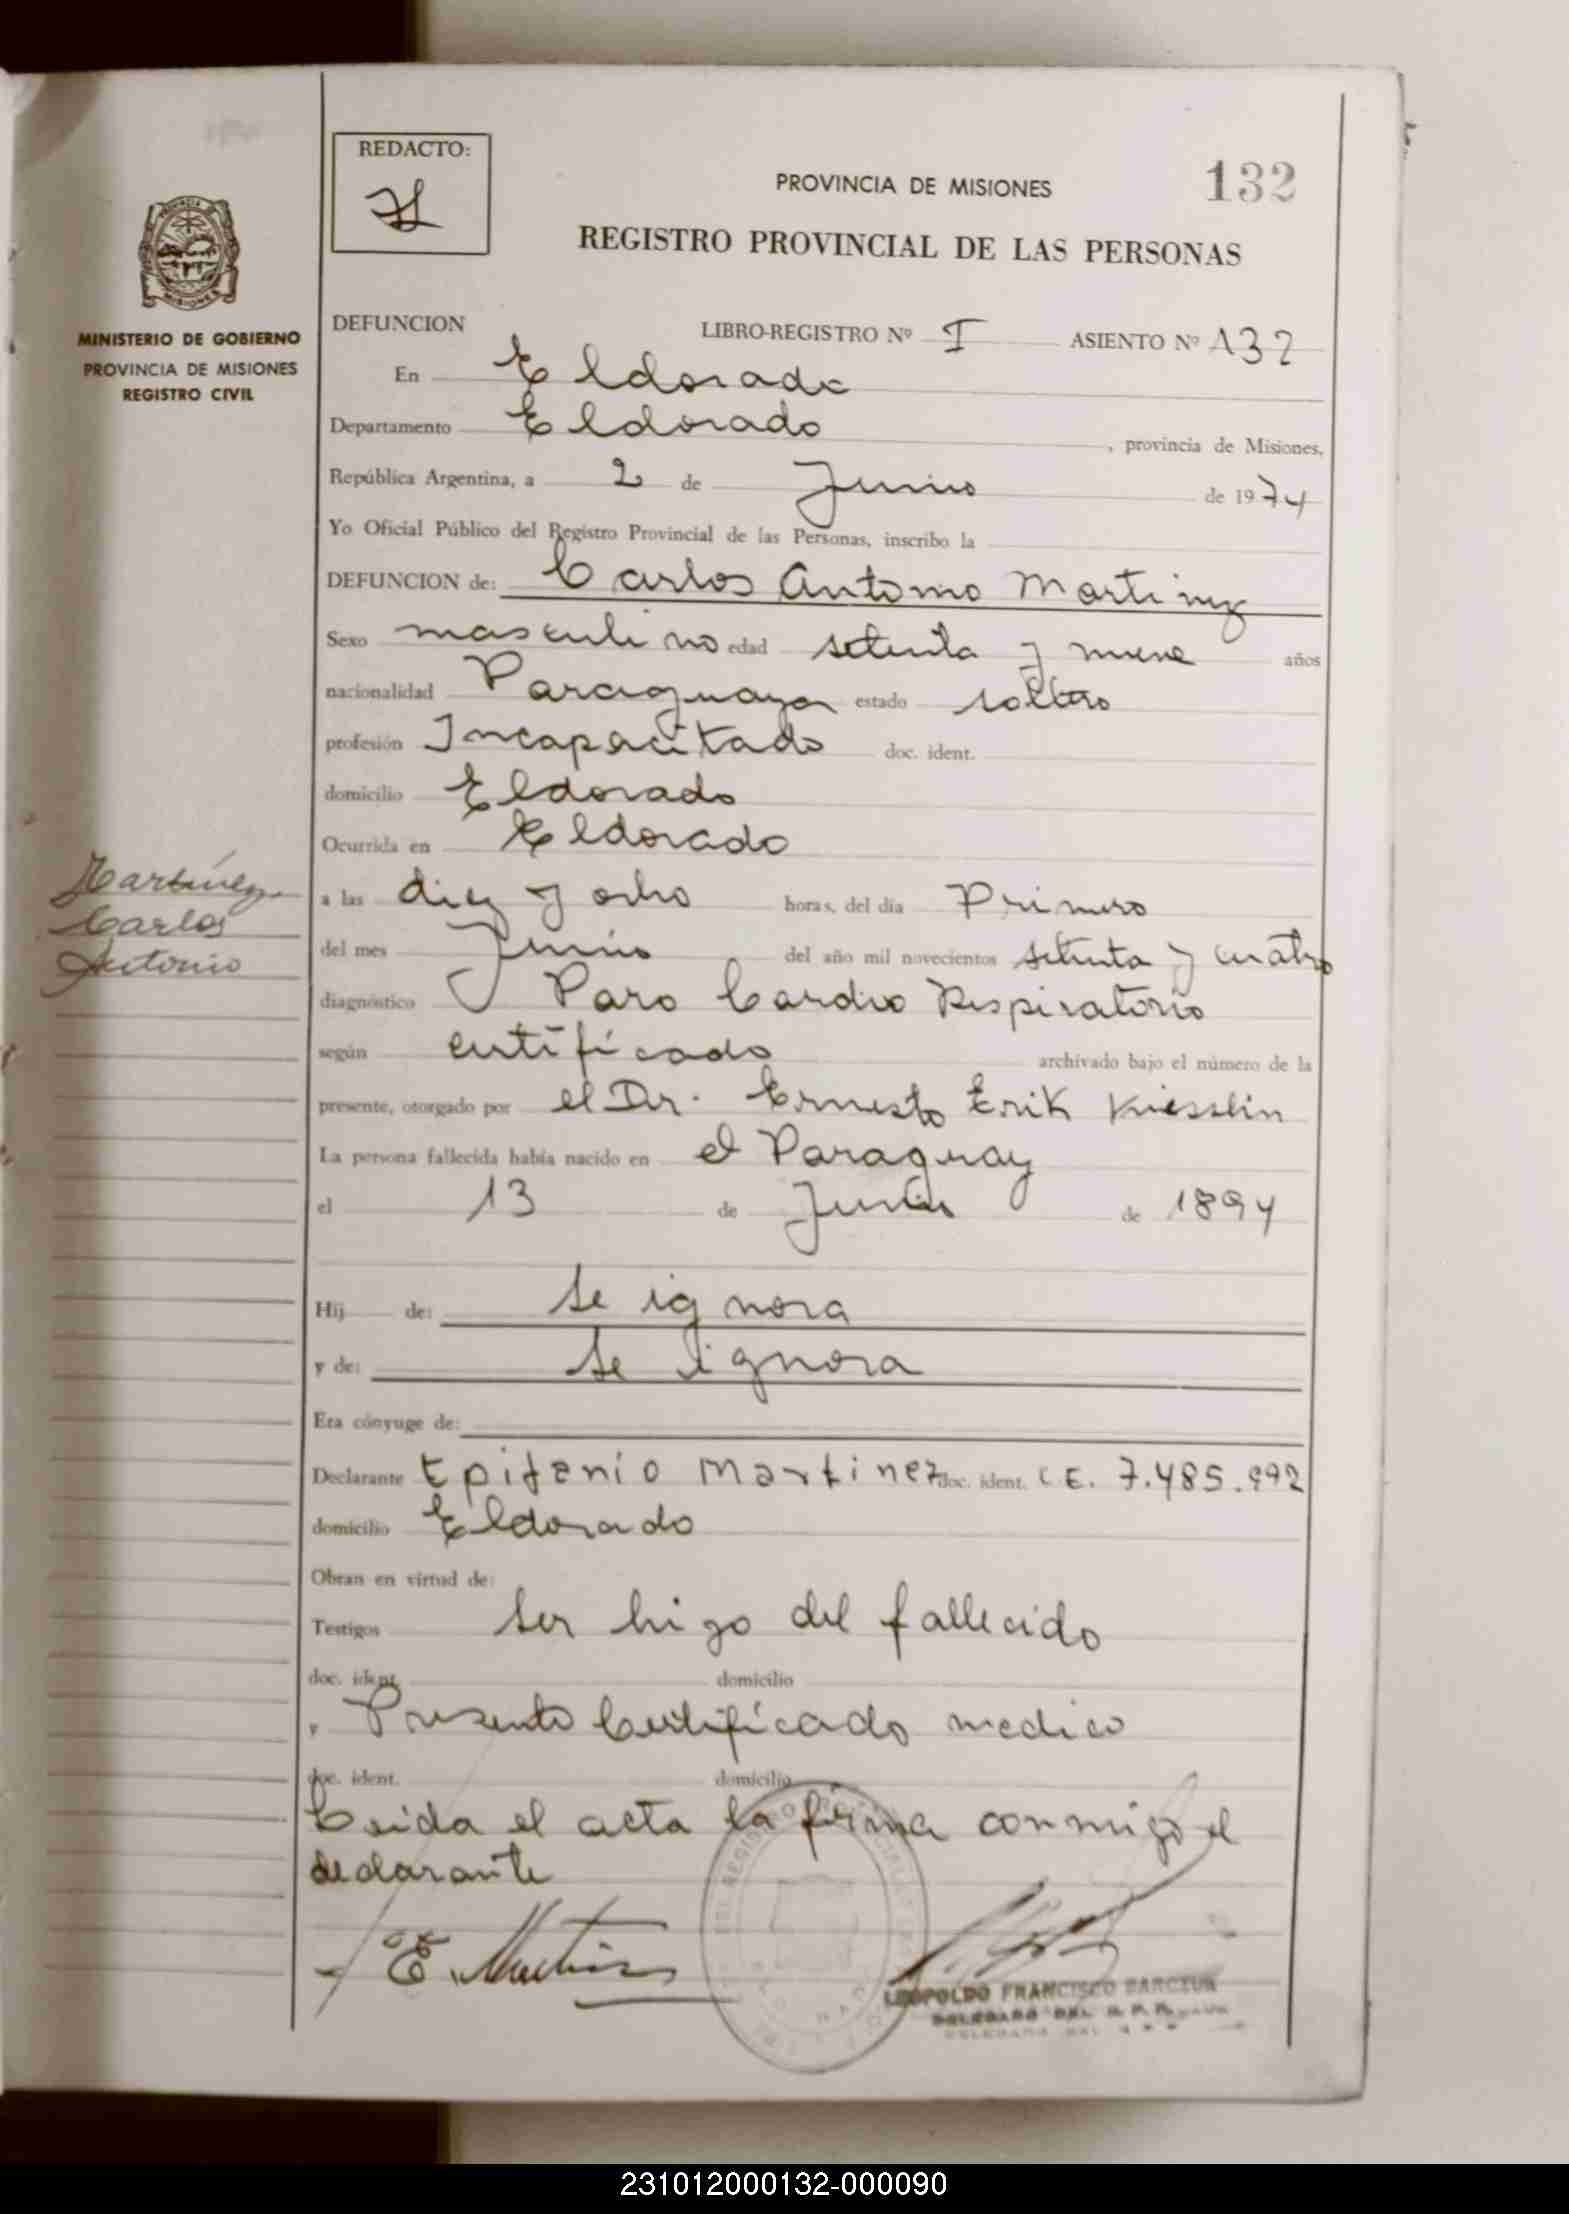 REDACTO:
PROVINCIA DE MISIONES
132
REGISTRO PROVINCIAL DE LAS PERSONAS
PROVINCIA DE
MISIONES
MINISTERIO DE GOBIERNO
PROVINCIA DE MISIONES
REGISTRO CIVIL
DEFUNCION LIBRO-REGISTRO Nº I ASIENTO Nº 132
En Eldorado
Departamento Eldorado, provincia de Misiones,
República Argentina, a 2 de Junio de 1974
Yo Oficial Público del Registro Provincial de las Personas, inscribo la
DEFUNCION de: Carlos Antonio Martinez
Sexo masculino edad setenta y nueve años
nacionalidad Paraguaya estado soltero
profesión Incapacitado doc. ident.
domicilio Eldorado
Ocurrida en Eldorado
Martínez
Carlos
Antonio
a las diez y ocho horas, del día Primero
del mes Junio del año mil novecientos setenta y cuatro
diagnóstico Paro Cardio Respiratorio
según certificado archivado bajo el número de la
presente, otorgado por el Dr. Ernesto Erik Kiesslin
La persona fallecida había nacido en el Paraguay
el 13 de Junio de 1894
Hij de: Se ignora
y de: Se ignora
Era cónyuge de:
Declarante Epifanio Martinez doc. ident. C.E. 7.485.992
domicilio Eldorado
Obran en virtud de:
Testigos Ser higo del fallecido
doc. ident. domicilio
y Presento Certificado medico
doc. ident. domicilio
Leida el acta la firma conmigo el
declarante
E. Martinez
LEOPOLDO FRANCISCO
DELEGADO DEL R. P. P.
231012000132-000090